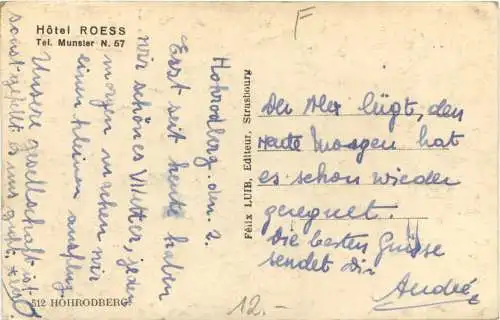 Hôtel ROESS
Tél. Munster N. 57
F
Hohrodberg. den. 2.
Erst seit heute haben
wir schönes Wetter, jeden
morgen machen wir
einen kleinen ausflug.
Unsere gesellschaft ist
sonst gefällt es uns gut.
Félix LUIB, Editeur, Strasbourg
Der Alex lügt, den
Heute Morgen hat
es schon wieder
geregnet.
Die besten Grüsse
sendet Dir
André
512 HOHRODBERG.
12.-